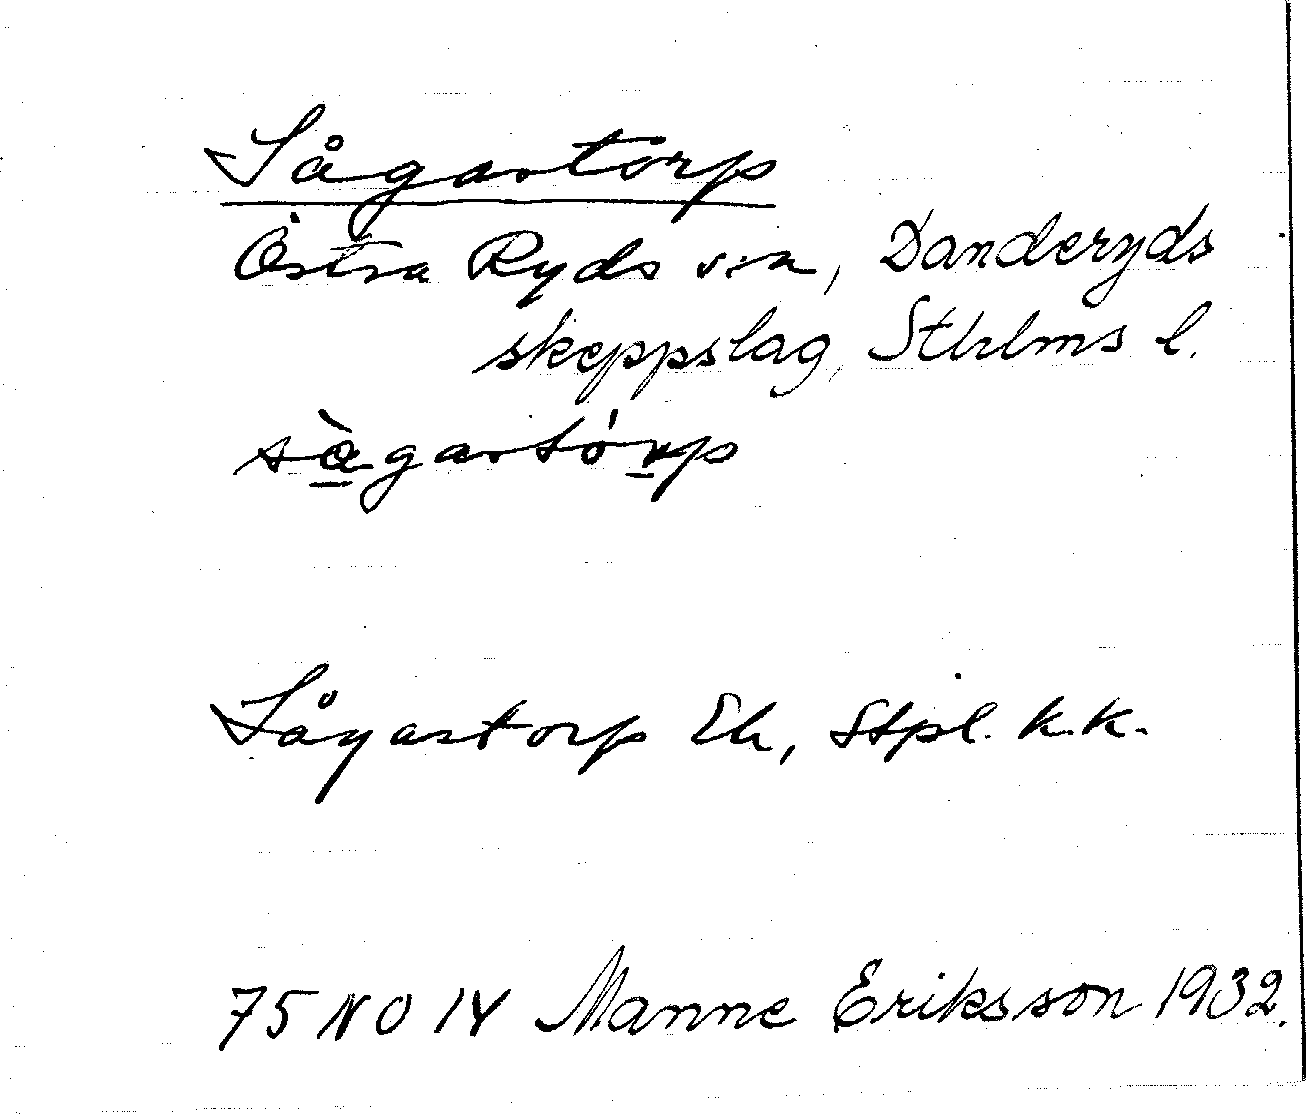 Sågastorp
Östra Ryds sn, Danderyds
skeppslag, Sthlms l.
sågastórp
Sågastorp Ek, Stpl. k.k.
75 NO 14 Manne Eriksson 1932.